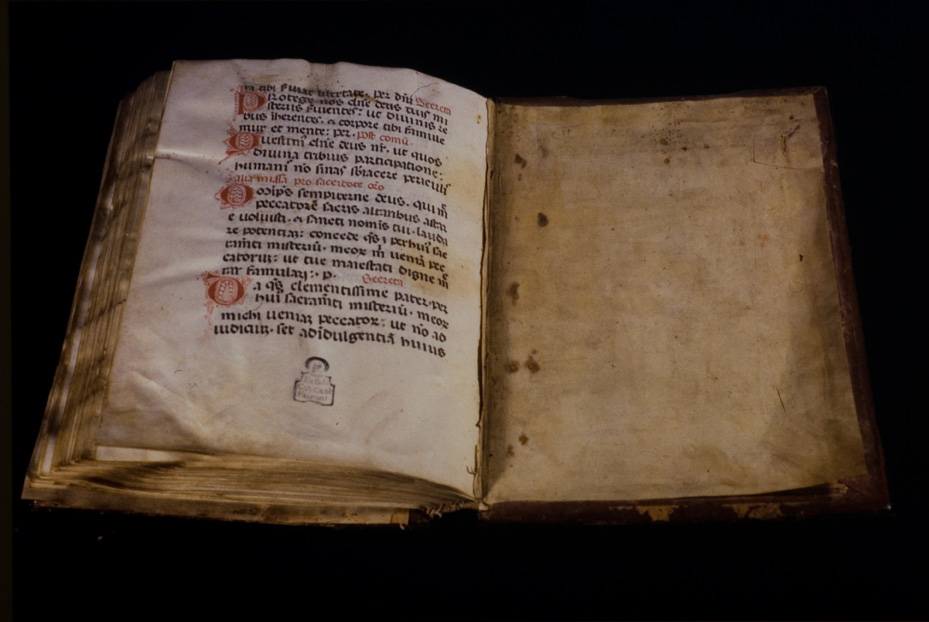 tibi seruiat libertate. per dñm Secreta
Protege nos dñe deus tuis mi
steriis seruientes: ut diuinis re
bus iherentes. et corpore tibi famule
mur et mente: per. post comũ.
Quesum dñe deus nr̃. ut quos
diuina tribuis participatione:
humanis nõ sinas sbiacere periculis
alia missa pro sacerdote oro
Omips sempiterne deus. qui m̃
peccatorẽ sacris altaribus astar
e uoluisti. et sancti nomis tui lauda
re potentiaz: concede qs p huius sac
ramti misteriũ. meoz m̃ ueniã pec
catoruz: ut tue maiestati digne m̃
rar famulari: p. Secreta
Da qs clementissime pater. per
huius sacramti misteriũ. meoz
michi ueniaz peccatoz: ut nõ ad
iudiciuz. set ad idulgentiã huius